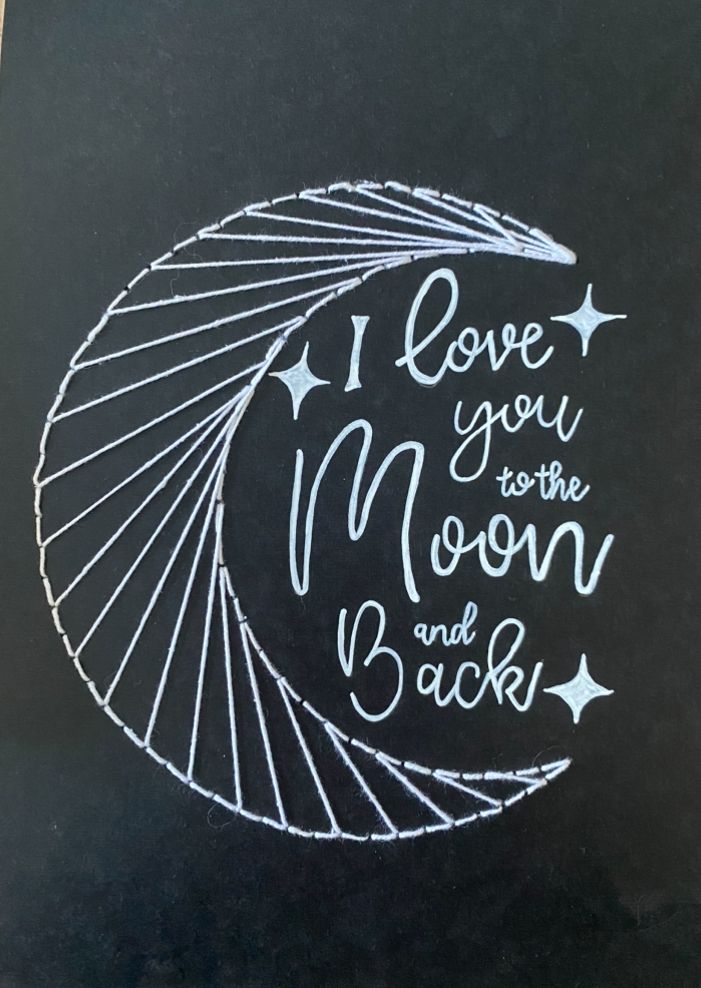 I love
you
to the
Moon
and
Back